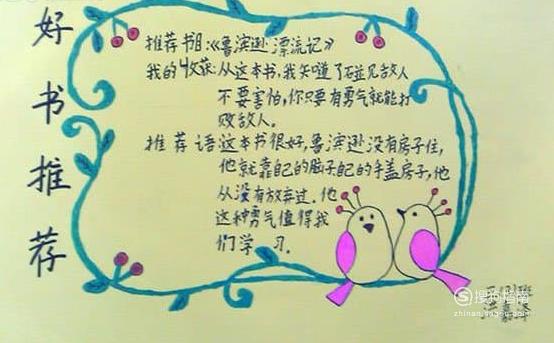 好书推荐
推荐书目:《鲁滨逊漂流记》
我的收获:从这本书,我知道了碰见敌人
不要害怕,你只要有勇气就能打
败敌人。
推荐语:这本书很好,鲁滨逊没有房子住,
他就靠自己的脑子自己的手盖房子,他
从没有放弃过.他
这种勇气值得我
们学习.
搜狗指南
zhinan.sogou.com